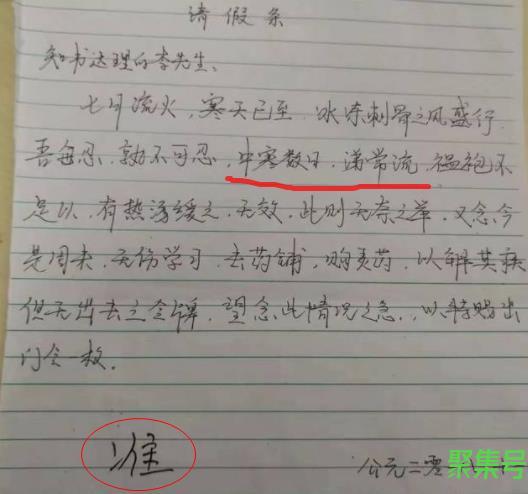 请假条
知书达理的李先生、
七月流火，寒天已至，冰冻刺骨之风盛行
吾每忍，孰不可忍，中寒数日，涕常流，缊袍不
足以，有热汤缓之，无效，此则无奈之举，又念今
是周末，无伤学习，去药铺，购买药，以解其疾
但无出去之令牌，望念此情况之急，以特赐出
门令一枚．
准
公元二零
聚集号